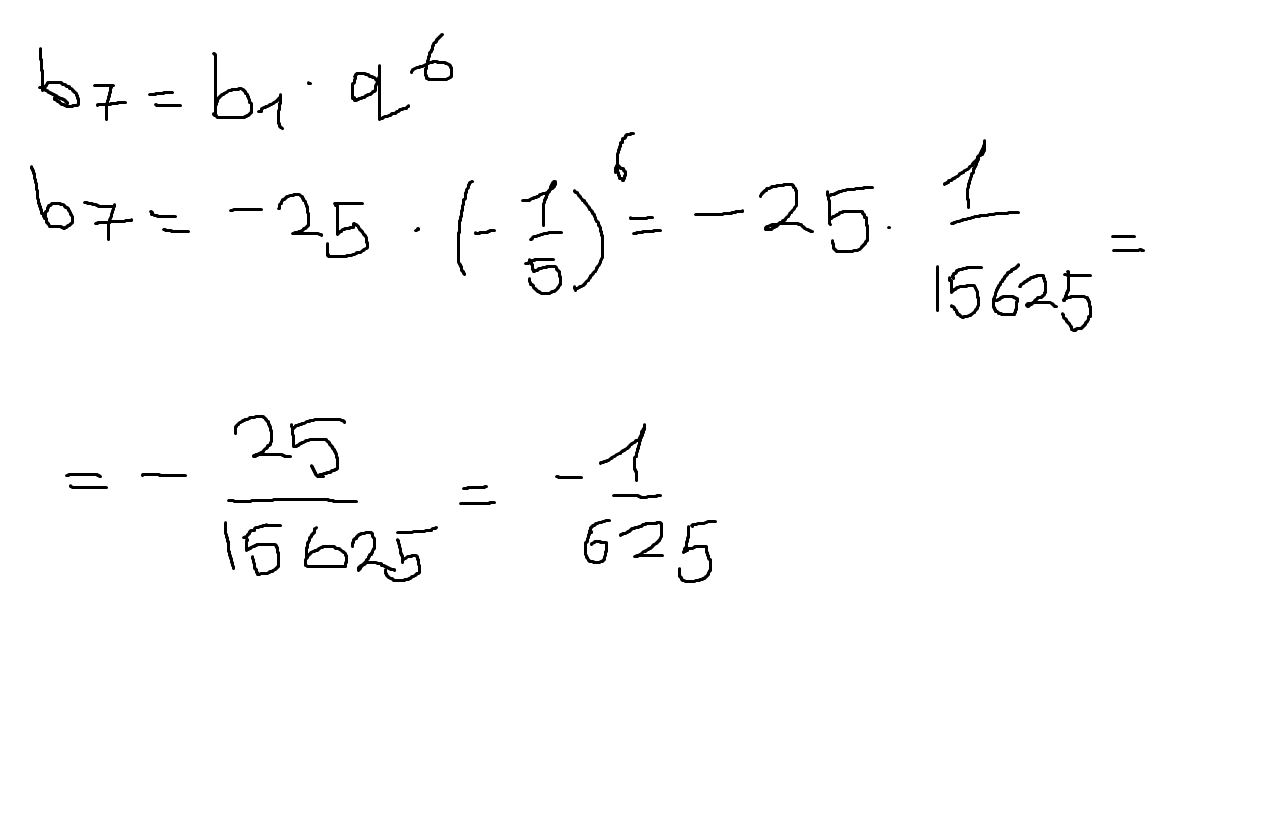 b₇ = b₁ · q⁶
b₇ = -25 · (-1/5)⁶ = -25 · 1/15625 =
= - 25/15625 = -1/625